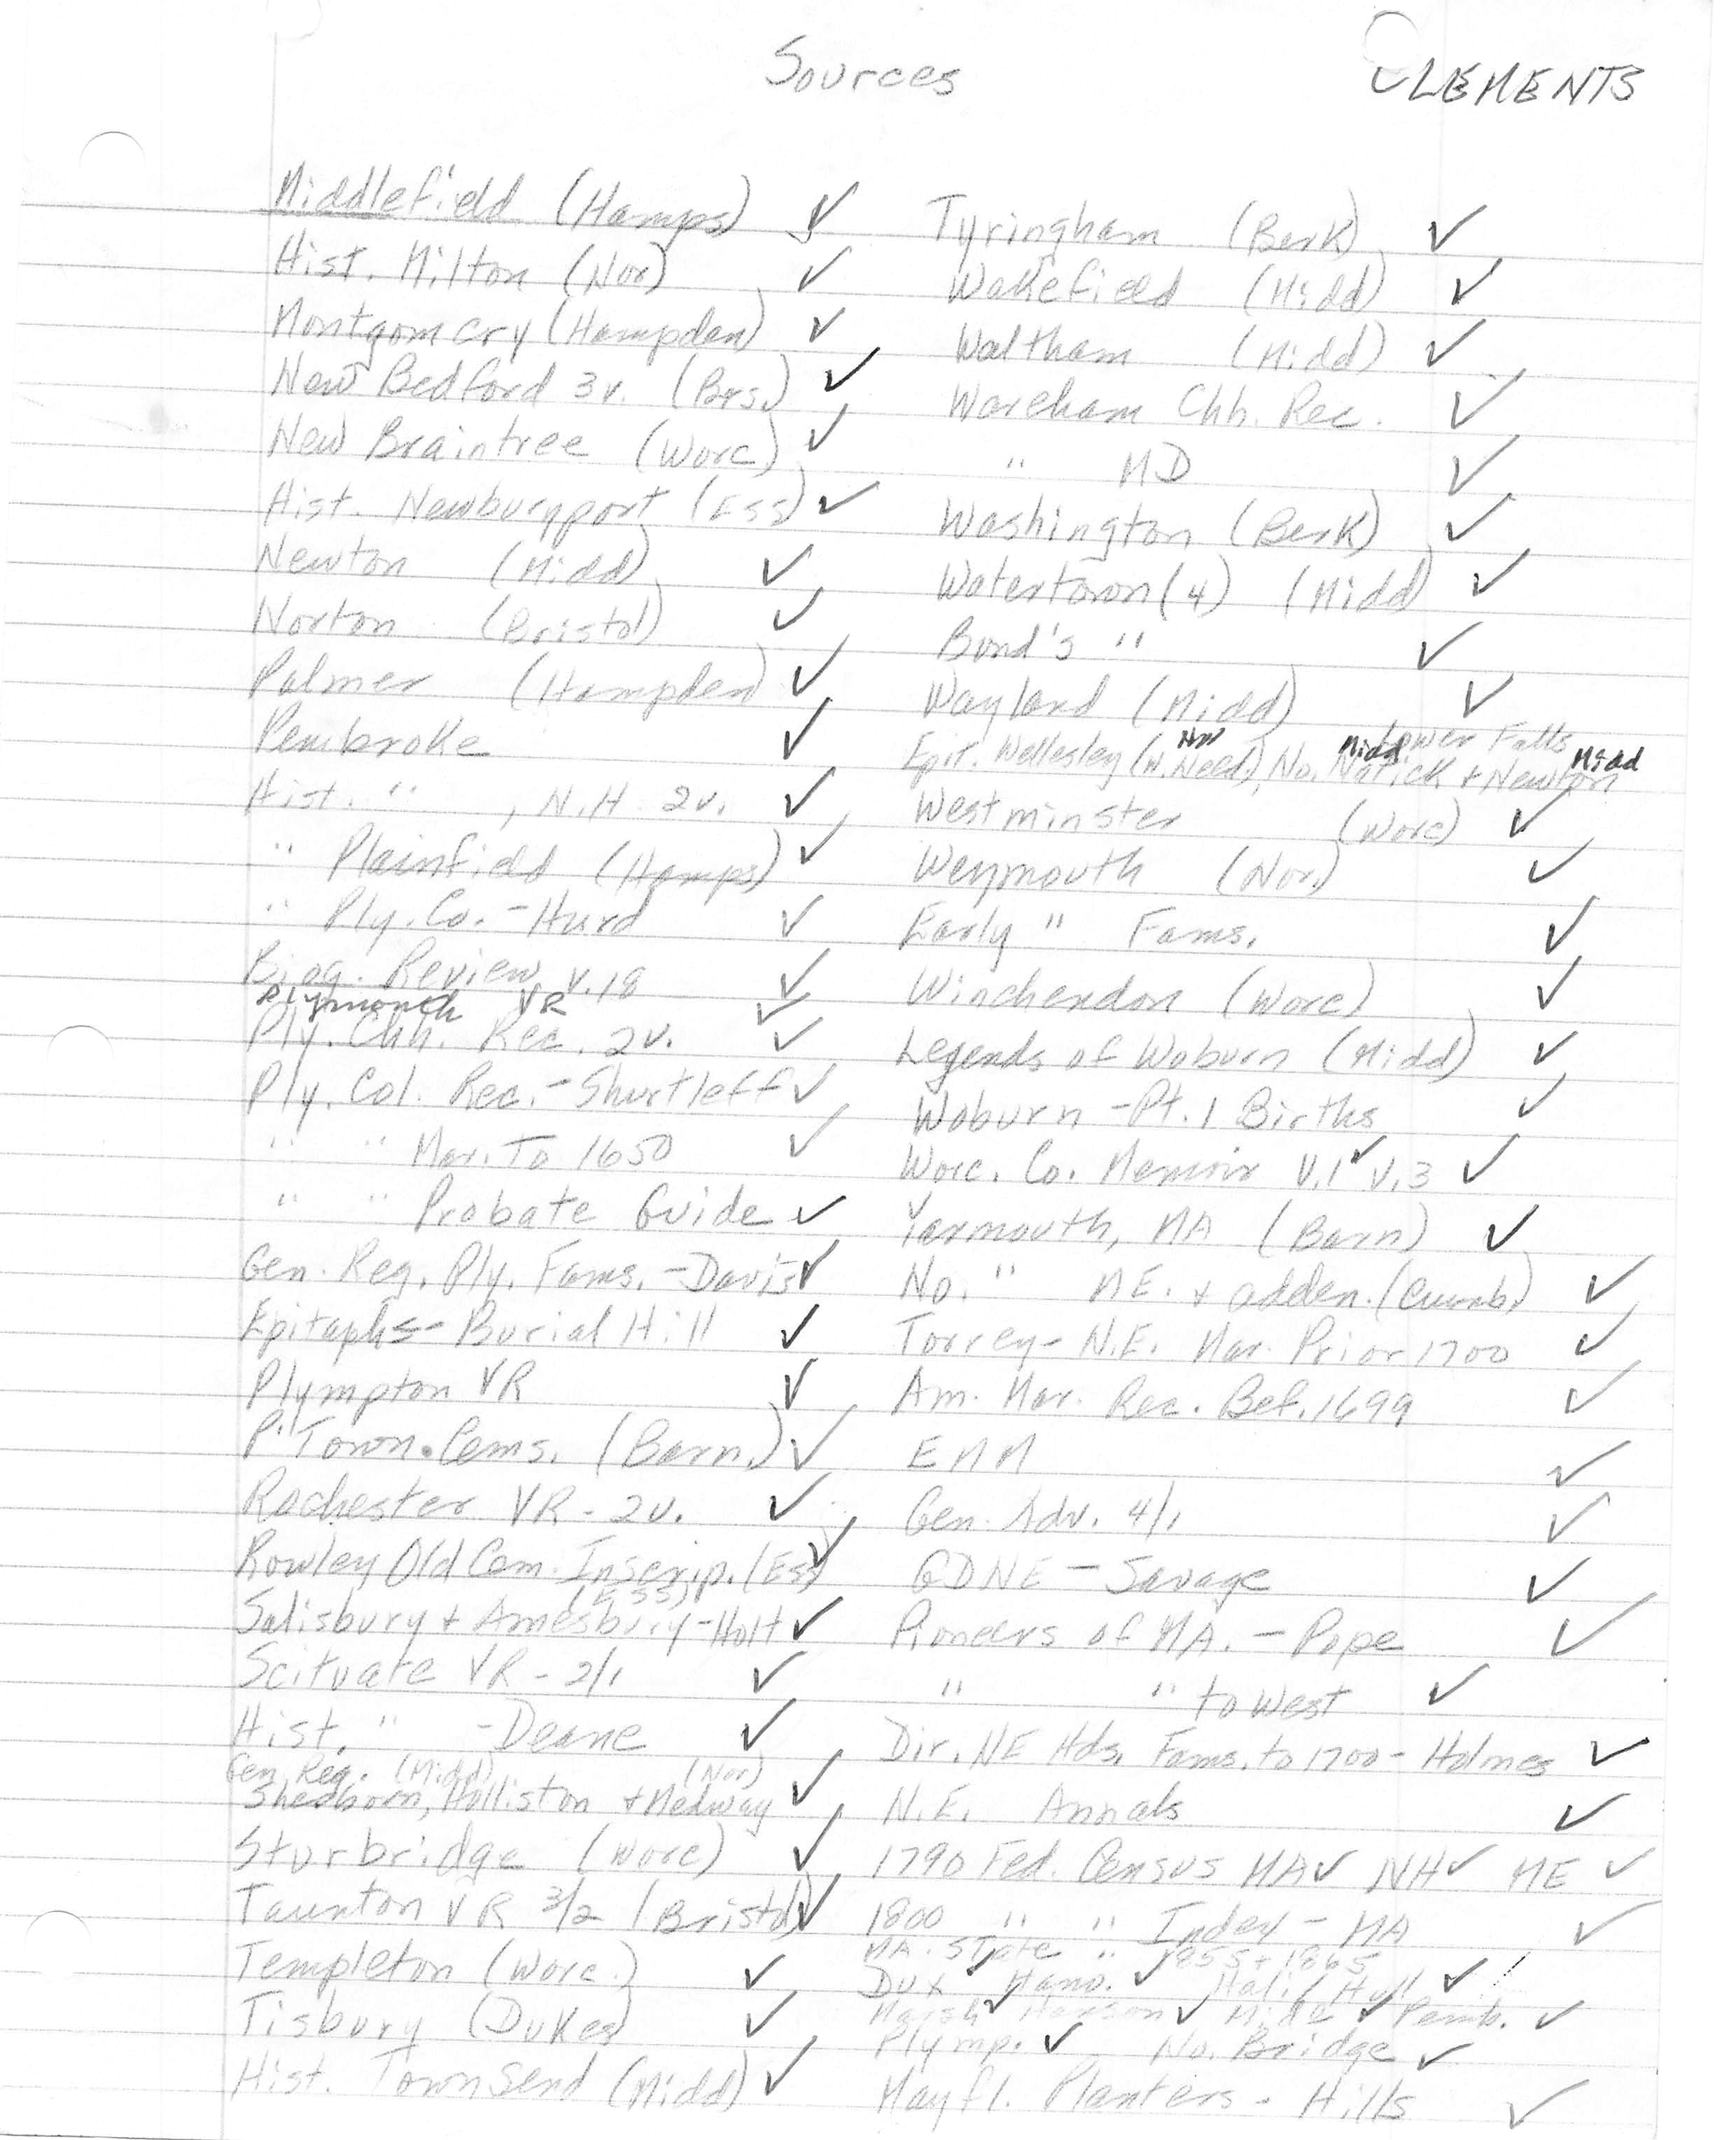 Sources
CLEMENTS
Middlefield (Hamps) ✓
Hist. Milton (Nor) ✓
Montgomery (Hampden) ✓
New Bedford 3v. (Brs.) ✓
New Braintree (Worc) ✓
Hist. Newburyport (Ess) ✓
Newton (Midd) ✓
Norton (Bristol) ✓
Palmer (Hampden) ✓
Pembroke ✓
Hist. " , N.H. 2v. ✓
" Plainfield (Hamps) ✓
" Ply. Co. - Hurd ✓
Biog. Review v.18 ✓
Plymouth VR ✓
Ply. Chh. Rec. 2v. ✓
Ply. Col. Rec. - Shurtleff ✓
" " Mar. To 1650 ✓
" " Probate Guide ✓
Gen. Reg. Ply. Fams. - Davis ✓
Epitaphs - Burial Hill ✓
Plympton VR ✓
P'Town. Cems. (Barn.) ✓
Rochester VR - 2v. ✓
Rowley Old Cem. Inscrip. (Ess) ✓
(ESS)
Salisbury + Amesbury - Hoit ✓
Scituate VR - 2/1 ✓
Hist. " - Deane ✓
Gen. Reg. (Midd) (Nor)
Sherborn, Holliston + Medway ✓
Sturbridge (Worc) ✓
Taunton VR 3/2 (Bristol) ✓
Templeton (Worc.) ✓
Tisbury (Dukes) ✓
Hist. Townsend (Midd) ✓
Tyringham (Berk) ✓
Wakefield (Midd) ✓
Waltham (Midd) ✓
Wareham Chh. Rec. ✓
" MD ✓
Washington (Berk) ✓
Watertown (4) (Midd) ✓
Bond's " ✓
Wayland (Midd) ✓
Nor Midd Lower Falls Midd
Epit. Wellesley (W. Need), No. Natick + Newton
Westminster (Worc) ✓
Weymouth (Nor.) ✓
Early " Fams. ✓
Winchendon (Worc) ✓
Legends of Woburn (Midd) ✓
Woburn - Pt. 1 Births ✓
Worc. Co. Memoir V.1 ✓ V.3 ✓
Yarmouth, MA (Barn) ✓
No. " ME. + adden. (Cumb.) ✓
Torrey - N.E. Mar. Prior 1700 ✓
Am. Mar. Rec. Bef. 1699 ✓
EMM ✓
Gen. Adv. 4/1 ✓
GDNE - Savage ✓
Pioneers of MA. - Pope ✓
" " to West ✓
Dir. NE Hds. Fams. to 1700 - Holmes ✓
N.E. Annals ✓
1790 Fed. Census MA ✓ NH ✓ ME ✓
1800 " " Index - MA ✓
MA. State " 1855 + 1865
Dux ✓ Hano. ✓ Hali ✓ Hull ✓
Marsh ✓ Hanson ✓ Midd ✓ Pemb. ✓
Plymp. ✓ No. Bridge ✓
Mayfl. Planters - Hills ✓